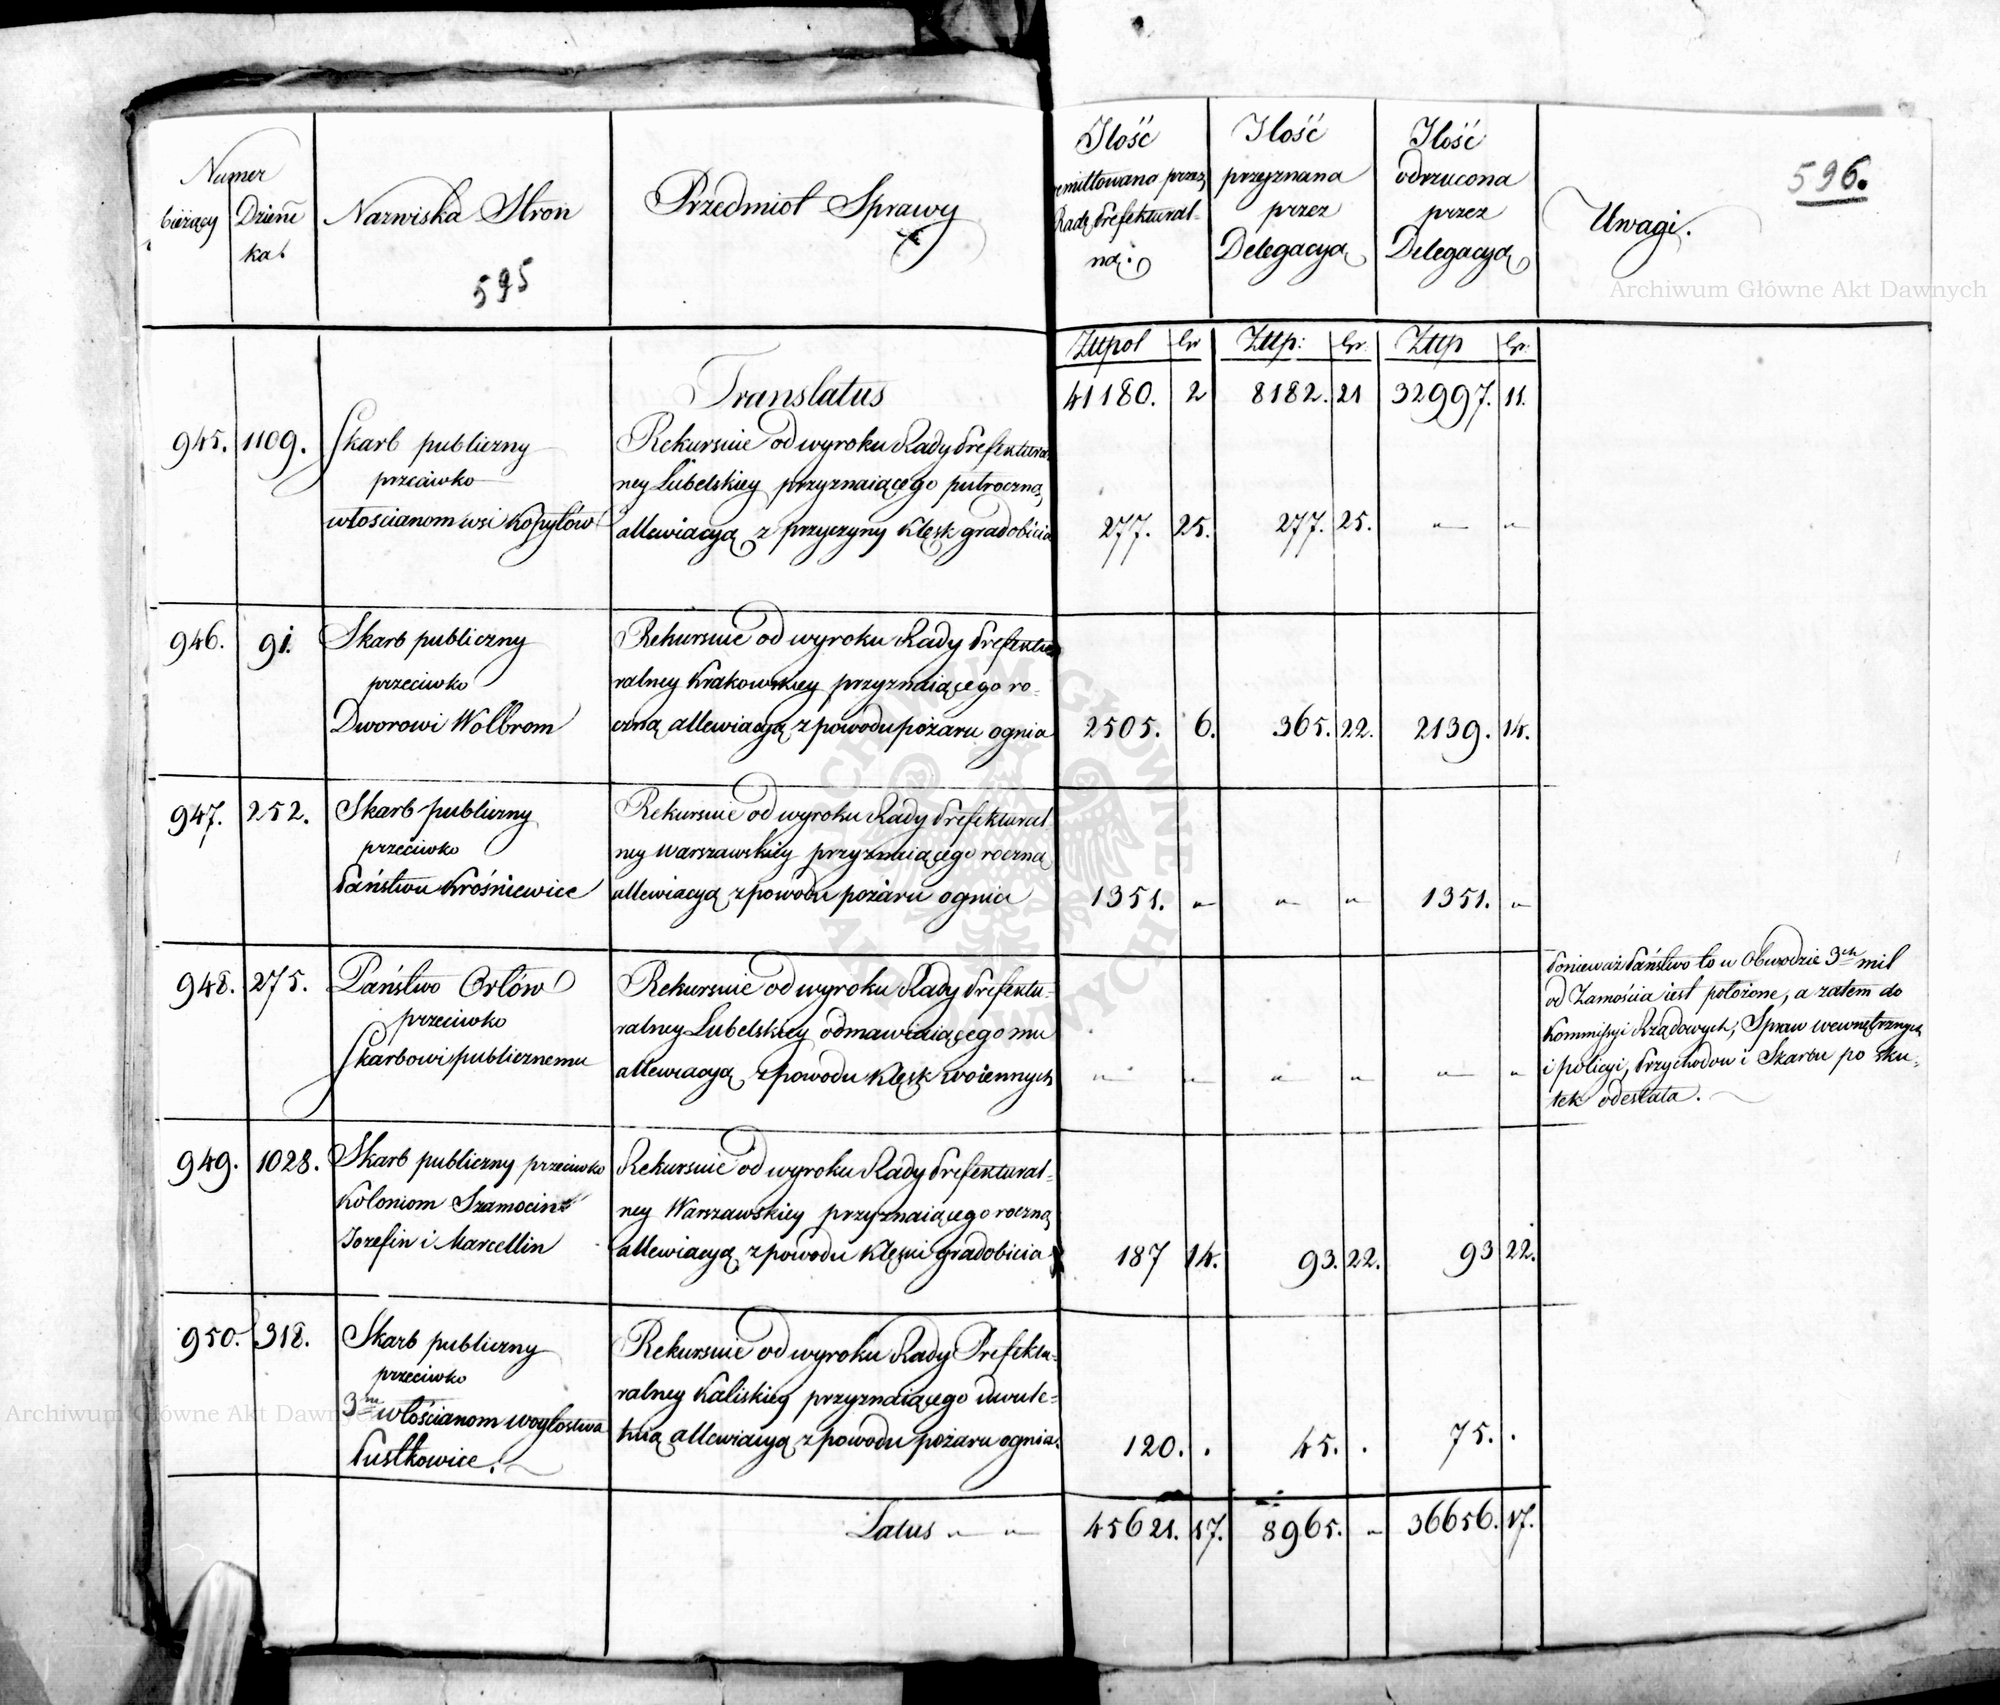 Numer
bieżący
Dzień
kal
Nazwiska Stron
Przedmiot Sprawy
595
Ilość
remittowana przez
Radę Prefektural-
ną.
Ilość
przyznana
przez
Delegacyą
Ilość
odrzucona
przez
Delegacyą
Uwagi.
596.
Archiwum Główne Akt Dawnych
Złtpol Gr Złtp: Gr. Złtp Gr.
Translatus 41180. 2 8182. 21 32997. 11.
945. 1109. Skarb publiczny
przeciwko
włościanom wsi Kopyłów
Rekursuie od wyroku Rady Prefektural
ney Lubelskiey przyznaiącego pułroczną
allewiacyą z przyczyny Klęsk gradobicia
277. 25. 277. 25. „ „
946. 91. Skarb publiczny
przeciwko
Dworowi Wolbrom
Rekursuie od wyroku Rady Prefektu
ralney Krakowskiey przyznaiącego ro-
czną allewiacyą z powodu pożaru ognia
2505. 6. 365. 22. 2139. 14.
947. 252. Skarb publiczny
przeciwko
Państwu Krośniewice
Rekursuie od wyroku Rady Prefektural
ney Warszawskiey przyznaiącego roczną
allewiacyą z powodu pożaru ognia
1351. „ „ „ 1351. „
948. 275. Państwo Orłów
przeciwko
Skarbowi publicznemu
Rekursuie od wyroku Rady Prefektu-
ralney Lubelskiey odmawiaiącego mu
allewiacyą z powodu Klęsk woiennych
„ „ „ „ „ „
Ponieważ Państwo to w Obwodzie 3ch mil
od Zamościa iest położone, a zatem do
Kommissyi Rządowych, Spraw wewnętrznych
i policyi, Przychodow i Skarbu po sku-
tek odesłała.
949. 1028. Skarb publiczny przeciwko
Koloniom Szamocin
Jozefin i Marcellin
Rekursuie od wyroku Rady Prefektural-
ney Warszawskiey przyznaiącego roczną
allewiacyą z powodu Klęski gradobicia
187 14. 93. 22. 93 22.
950. 318. Skarb publiczny
przeciwko
3m włościanom woytostwa
Pustkowice.
Rekursuie od wyroku Rady Prefektu-
ralney Kaliskiey przyznaiącego dwule-
tnią allewiacyą z powodu pożaru ognia.
120. . 45. . 75. .
Latus „ „ 45621. 17. 8965. „ 36656. 17.
Archiwum Główne Akt Dawnych
ARCHIWUM GŁÓWNE AKT DAWNYCH